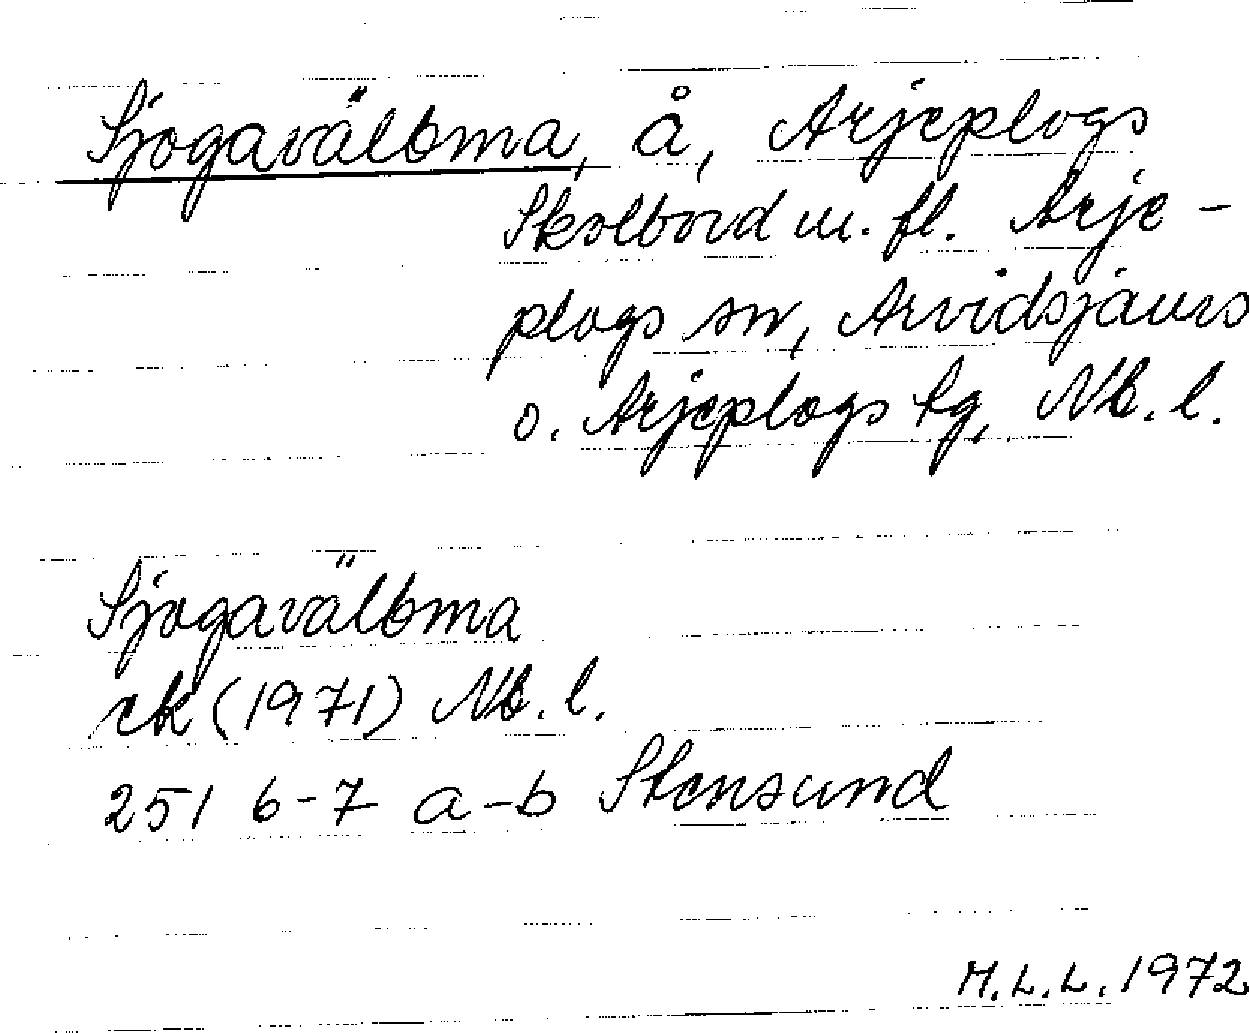 Sjogavälbma, å, Arjeplogs
Skolbord m. fl. Arje-
plogs sn, Arvidsjaurs
o. Arjeplogs tg, Nb. l.
Sjogavälbma
ek (1971) Nb. l.
25 I 6-7 a-b Stensund
M.L.L. 1972